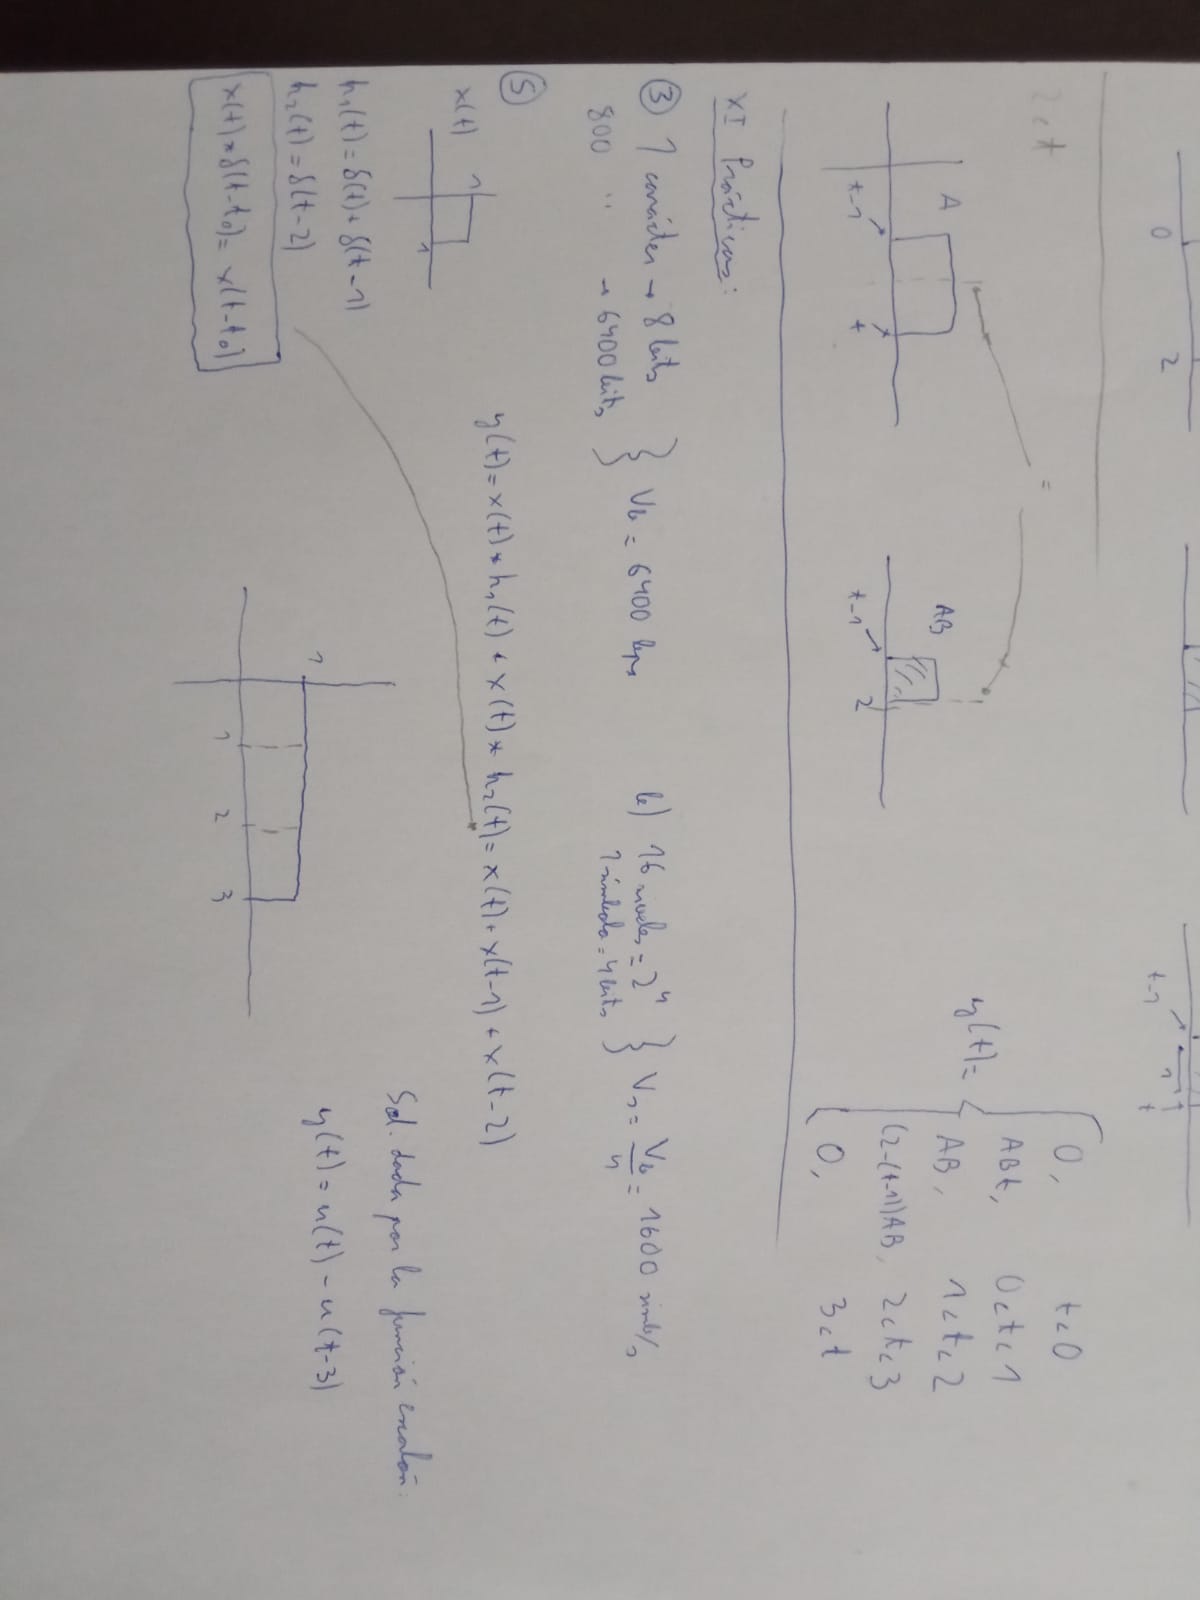 0 2
t-1 1 t
2<t
=
A
t-1 t
AB
t-1 2
y(t)= { 0, t<0
ABt, 0<t<1
AB, 1<t<2
(2-(t-1))AB, 2<t<3
0, 3<t
XI Prácticas:
③ 1 carácter → 8 bits } Vb = 6400 bps
800 " → 6400 bits
b) 16 niveles = 2⁴ } Vs = Vb/4 = 1600 simb/s
1 símbolo = 4 bits
⑤
x(t) 1 1
y(t)=x(t)*h₁(t)+x(t)*h₂(t)=x(t)+x(t-1)+x(t-2)
h₁(t)=δ(t)+δ(t-1)
h₂(t)=δ(t-2)
x(t)*δ(t-t₀)=x(t-t₀)
1
1 2 3
Sol. dada por la función escalón:
y(t)=u(t)-u(t-3)